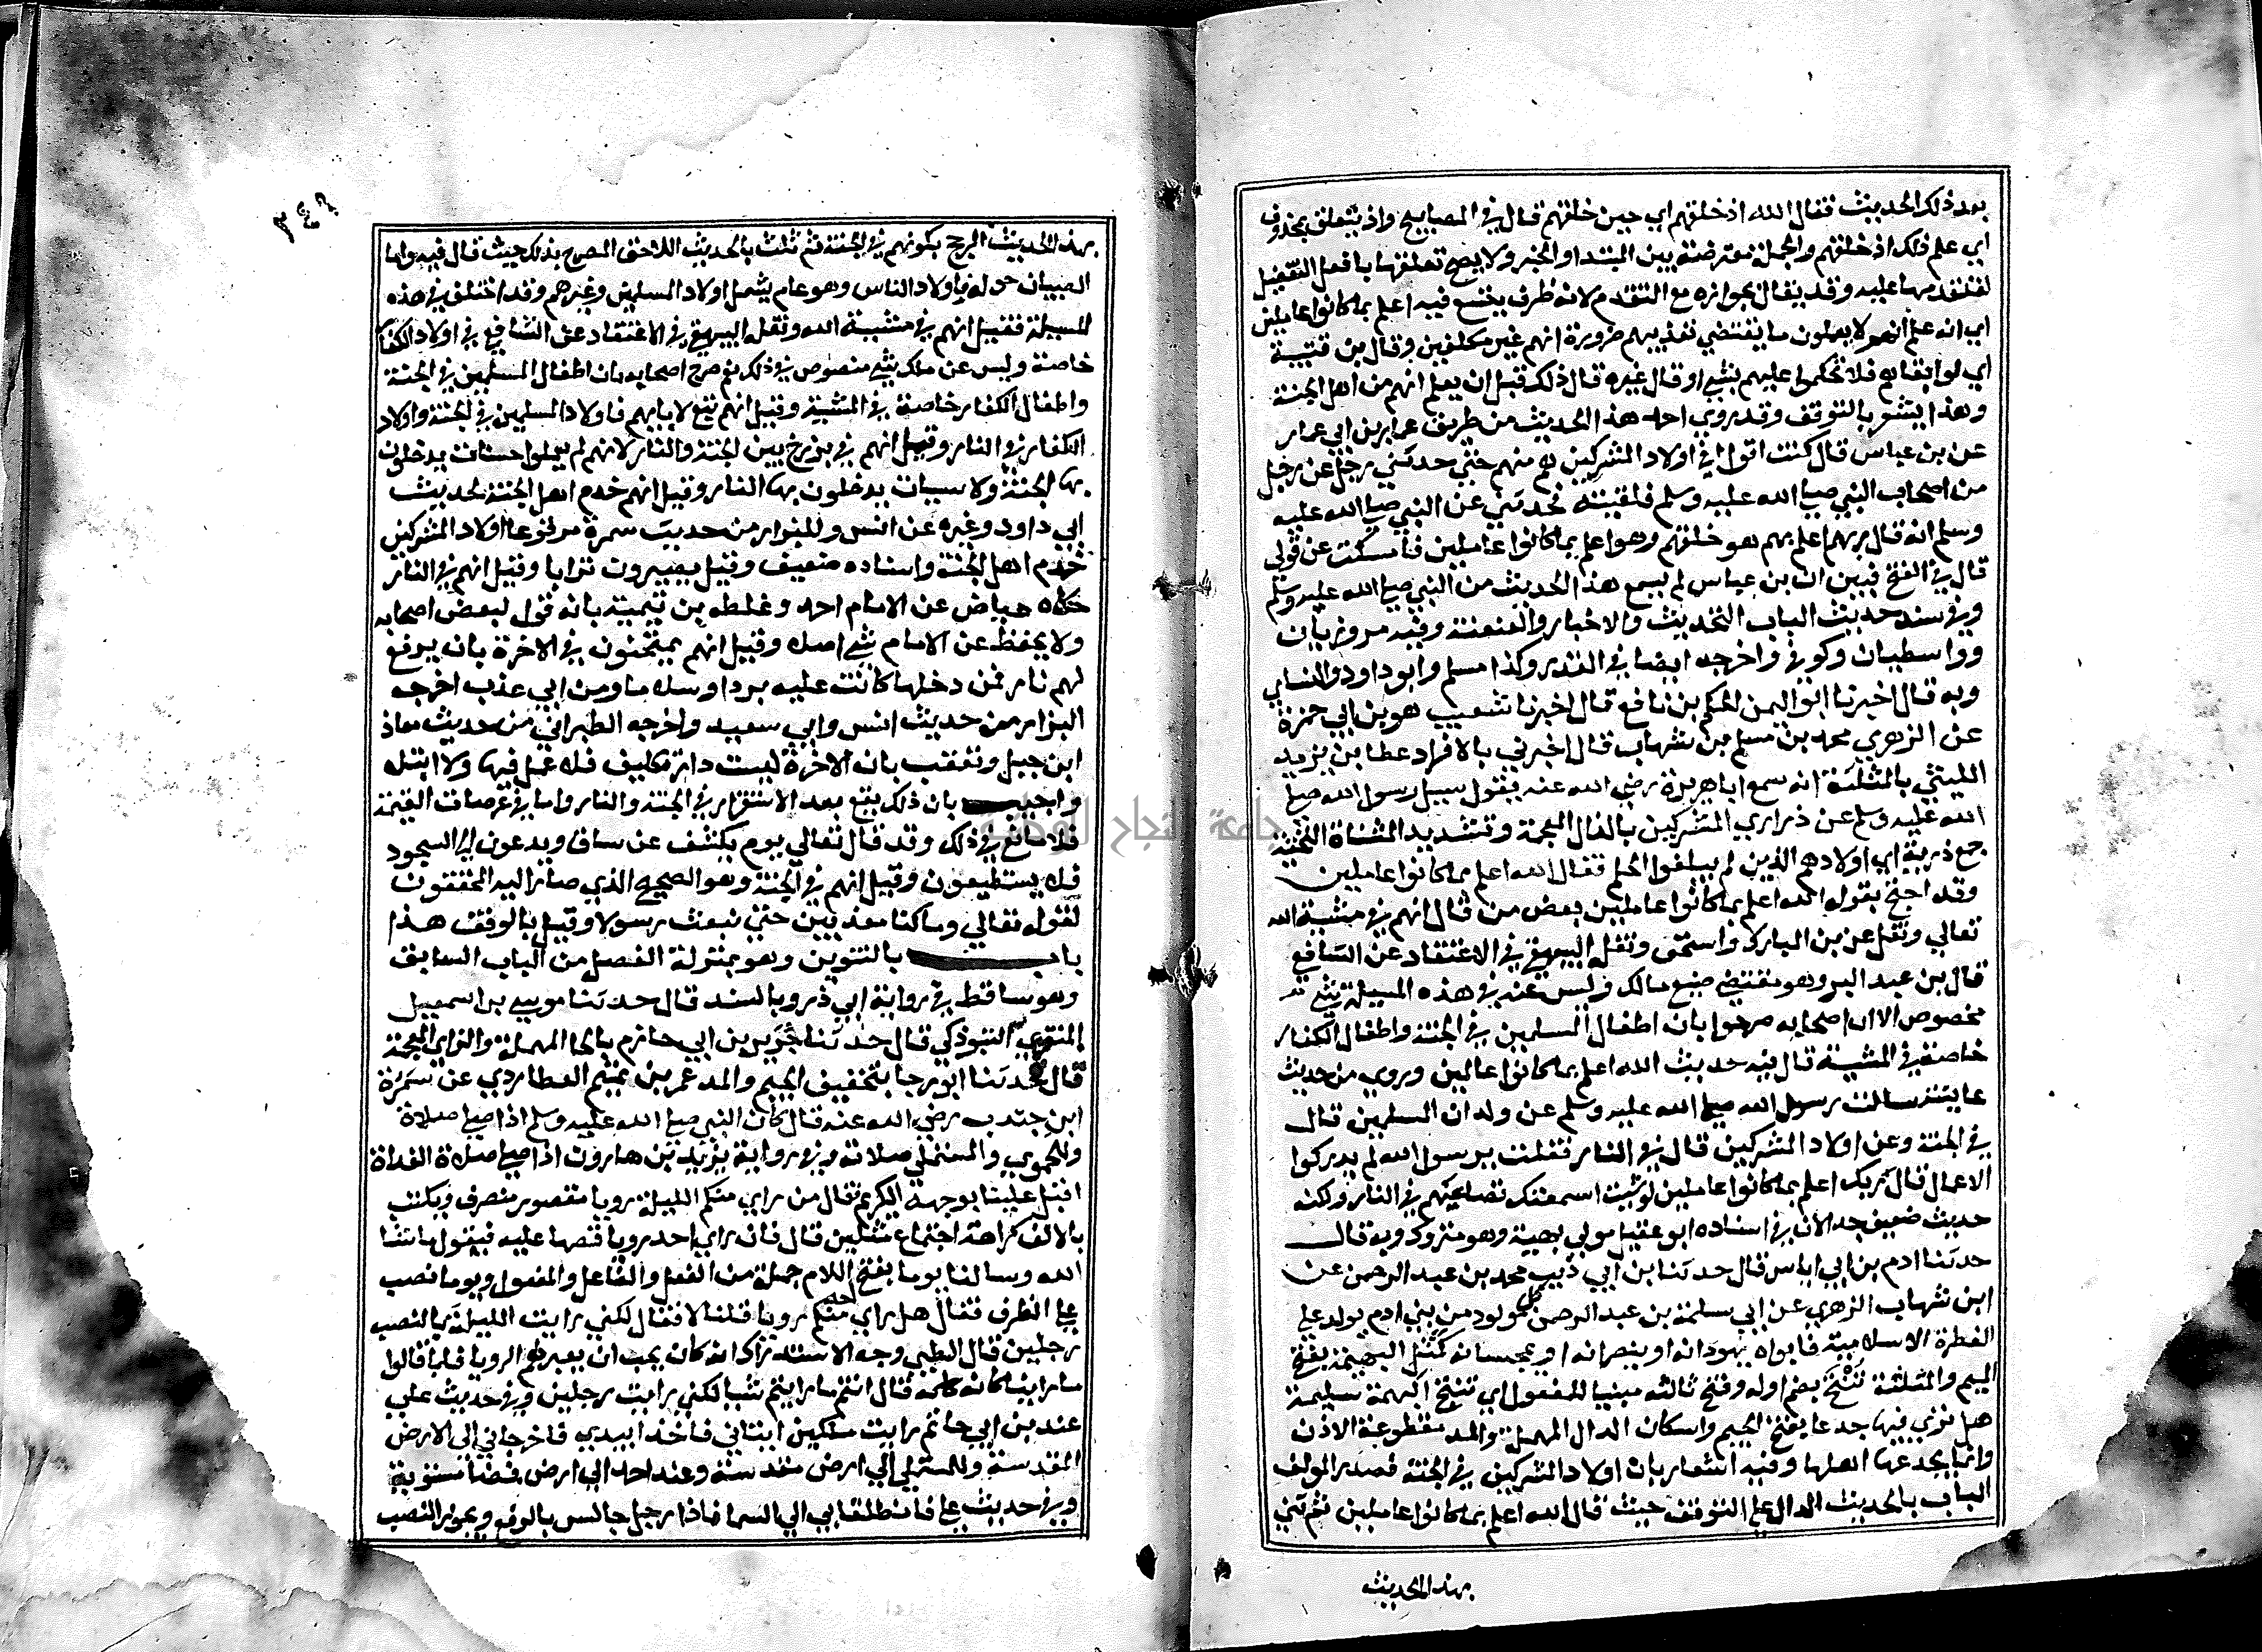 بعد ذلك الحديث فقال الله اذ خلقهم اي حين خلقهم قال في المصابيح واذ يتعلق بمحذوف
اي علم ذلك اذ خلقهم والجملة معترضة بين المبتدا والخبر ولا يصح تعلقها بافعل التفضيل
لتقدمها عليه وقد يقال بجوازه مع التقدم لانه ظرف يتسع فيه اعلم بما كانوا عاملين
اي انه علم انهم لا يعملون ما يقتضي تعذيبهم ضرورة انهم غير مكلفين وقال بن قتيبة
اي لو ابقاهم فلا تحكموا عليهم بشي او قال غيره قال ذلك قبل ان يعلم انهم من اهل الجنة
وهذا يشعر بالتوقف وقد روي احمد هذا الحديث من طريق عمار بن ابي عمار
عن بن عباس قال كنت اقول في اولاد المشركين هم منهم حتى حدثني رجل عن رجل
من اصحاب النبي صلي الله عليه وسلم فلقيته فحدثني عن النبي صلي الله عليه
وسلم انه قال ربهم اعلم بهم هو خلقهم وهو اعلم بما كانوا عاملين فامسكت عن قولي
قال في الفتح فبين ان بن عباس لم يسمع هذا الحديث من النبي صلي الله عليه وسلم
وفي سند حديث الباب التحديث والاخبار والعنعنة وفيه مروزيان
وواسطيان وكوفي واخرجه ايضا في القدر وكذا مسلم وابو داود والنساي
وبه قال اخبرنا ابو اليمن الحكم بن نافع قال اخبرنا شعيب هو بن ابي حمزة
عن الزهري محمد بن مسلم بن شهاب قال اخبرني بالافراد عطا بن يزيد
الليثي بالمثلثة انه سمع ابا هريرة رضي الله عنه يقول سيل رسول الله صلي
الله عليه وسلم عن ذراري المشركين بالذال المعجمة وتشديد المثناة التحتية
جمع ذرية اي اولادهم الذين لم يبلغوا الحلم فقال الله اعلم بما كانوا عاملين
وقد احتج بقوله الله اعلم بما كانوا عاملين بعض من قال انهم في مشيية الله
تعالي ونقل عن بن المبارك واسحق ونقله البيهقي في الاعتقاد عن الشافع
قال بن عبد البر وهو مقتضى صنيع مالك وليس عنه في هذه المسيلة شي
مخصوص الا ان اصحابه صرحوا بان اطفال المسلمين في الجنة واطفال الكفار
خاصة في المشية قال فيه حديث الله اعلم بما كانوا عاملين وروي من حديث
عايشة سالت رسول الله صلي الله عليه وسلم عن ولدان المسلمين قال
في الجنة وعن اولاد المشركين قال في النار فقلت يرسول الله لم يدركوا
الاعمال قال ربك اعلم بما كانوا عاملين لو شيت اسمعتك تضاغيهم في النار ولكنه
حديث ضعيف جدا لان في اسناده ابو عقيل مولي بهية وهو متروك وبه قال
حدثنا ادم بن ابي اياس قال حدثنا بن ابي ذيب محمد بن عبد الرحمن عن
ابن شهاب الزهري عن ابي سلمة بن عبد الرحمن كل مولود من بني ادم يولد علي
الفطرة الاسلامية فابواه يهودانه او ينصرانه او يمجسانه كمثل البهيمة بفتح
الميم والمثلثة تنتج بضم اوله وفتح ثالثه مبنيا للمفعول اي تنتج البهيمة سليمة
هل تري فيها جدعا بفتح الجيم واسكان الدال المهملة والمد مقطوعة الاذن
وانما يجدعها اهلها وفيه اشعار بان اولاد المشركين في الجنة فصدر المولف
الباب بالحديث الدال علي التوقف حيث قال الله اعلم بما كانوا عاملين ثم ثني
بهذا الحديث
٢٤٩
بهذا الحديث المرجح بكونهم في الجنة ثم ثلث بالحديث اللاحق المصرح بذلك حيث قال فيه واما
الصبيان حوله فاولاد الناس وهو عام يشمل اولاد المسلمين وغيرهم وقد اختلف في هذه
المسيلة فقيل انهم في مشيية الله ونقله البيهقي في الاعتقاد عن الشافع في اولاد الكفار
خاصة وليس عن ملك شي منصوص في ذلك نعم صرح اصحابه بان اطفال المسلمين في الجنة
واطفال الكفار خاصة في المشية وقيل انهم تبع لابايهم فاولاد المسلمين في الجنة واولاد
الكفار في النار وقيل انهم في برزخ بين الجنة والنار لانهم لم يعملوا حسنات يدخلون
بها الجنة ولا سيات يدخلون بها النار وقيل انهم خدم اهل الجنة لحديث
ابي داود وغيره عن انس وللبزار من حديث سمرة مرفوعا اولاد المشركين
خدم اهل الجنة واسناده ضعيف وقيل يصيرون ترابا وقيل انهم في النار
حكاه عياض عن الامام احمد وغلطه بن تيمية بانه قول لبعض اصحابه
ولا يحفظ عن الامام شي اصلا وقيل انهم يمتحنون في الاخرة بان يرفع
لهم نار فمن دخلها كانت عليه بردا وسلاما ومن ابي عذب اخرجه
البزار من حديث انس وابي سعيد واخرجه الطبراني من حديث معاذ
ابن جبل وتعقب بان الاخرة ليست دار تكليف فلا عمل فيها ولا ابتلا
واجيب بان ذلك يقع بعد الاستقرار في الجنة والنار واما في عرصات القيمة
فلا مانع في ذلك وقد قال تعالي يوم يكشف عن ساق ويدعون الي السجود
فلا يستطيعون وقيل انهم في الجنة وهو الصحيح الذي صار اليه المحققون
لقوله تعالي وما كنا معذبين حتي نبعث رسولا وقيل بالوقف هذا
باب بالتنوين وهو بمنزلة الفصل من الباب السابق
وهو ساقط في رواية ابي ذر وبالسند قال حدثنا موسي بن اسمعيل
المنقري التبوذكي قال حدثنا جرير بن ابي حازم بالحا المهملة والزاي المعجمة
قال حدثنا ابو رجا بتخفيف الجيم والمد عمر بن تميم العطاردي عن سمرة
ابن جندب رضي الله عنه قال كان النبي صلي الله عليه وسلم اذا صلي صلاة
وللحموي والمستملي صلاته وفي رواية يزيد بن هارون اذا صلي صلاة الغداة
اقبل علينا بوجهه الكريم فقال من راي منكم الليلة رويا مقصور منصرف ويكتب
بالالف كراهة اجتماع مثلين قال فان راي احد رويا قصها عليه فيقول ما شا
الله وسالنا يوما بفتح اللام جملة من الفعل والفاعل والمفعول ويوما نصب
علي الظرف فقال هل راي احد منكم رويا قلنا لا فقال لكني رايت الليلة بالنصب
رجلين قال الطيبي وجه الاستدراك انه كان يحب ان يعبر لهم الرويا فلما قالوا
ما راينا كانه قال انتم ما رايتم شيا لكني رايت رجلين وفي حديث علي
عند بن ابي حاتم رايت ملكين اتياني فاخذا بيدي فاخرجاني الي الارض
المقدسة وللمستملي الي ارض مقدسة وعند احمد الي ارض فضا مستوية
وفي حديث علي فانطلقا بي الي السما فاذا رجل جالس بالرفع ويجوز النصب
جامعة النجاح الوطنية